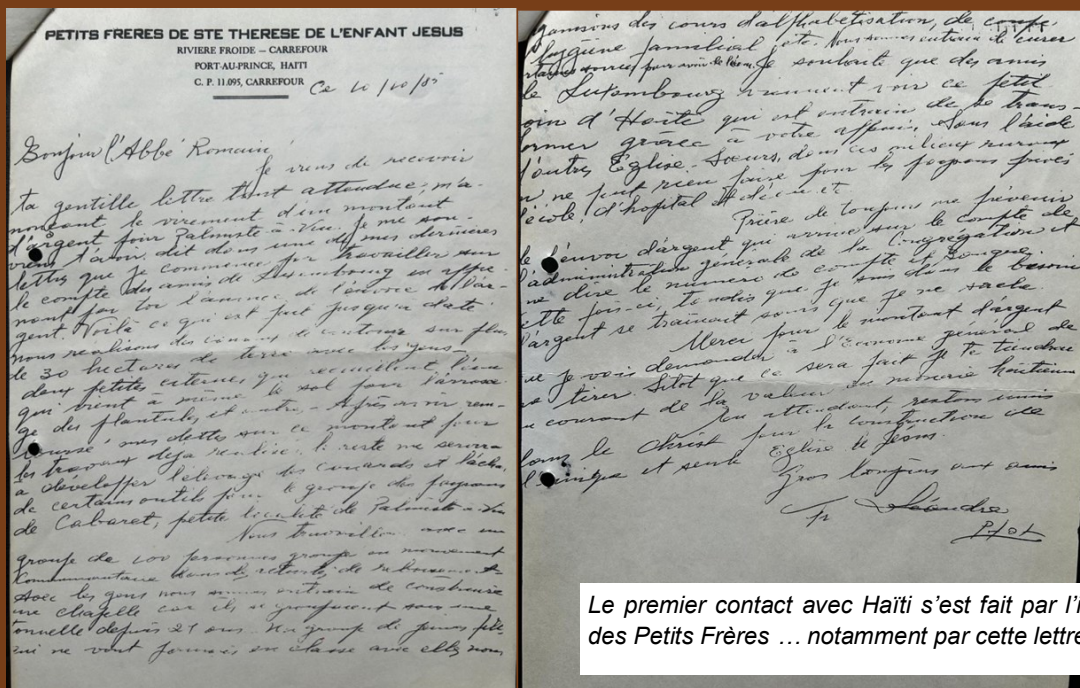 PETITS FRERES DE STE THERESE DE L'ENFANT JESUS
RIVIERE FROIDE – CARREFOUR
PORT-AU-PRINCE, HAITI
C. P. 11.095, CARREFOUR
Ce 10/10/85
Bonjour l'Abbé Romain
Je viens de recevoir
ta gentille lettre tant attendue, m'a-
nonçant le virement d'un montant
d'argent pour Palmiste-à-Vin. Je me sou-
viens t'avoir dit dans une de mes dernières
lettres que je commence par travailler sur
le compte des amis de Luxembourg
l'annonce de l'envoie de l'ar-
gent. Voilà ce qui est fait jusqu'à date
nous réalisons des canaux de contour sur plus
de 30 hectares de terre avec les gens –
deux petites citernes qui recueillent l'eau
qui vient à même le sol pour l'arrosa-
ge des plantules et autre. Après avoir rem-
boursé mes dettes sur ce montant pour
les travaux déjà réalisés, le reste me servira
à développer l'élevage des canards et l'achat
de certains outils pour le groupe des paysans
de Cabaret, petite localité de Palmiste-à-Vin
Nous travaillons avec un
groupe de 100 personnes groupe en mouvement
Communautaire dans de reboisement.
Avec les gens nous sommes entrain de construire
une chapelle car ils se groupent sous une
tonnelle depuis 21 ans. Un groupe de jeunes filles
qui ne vont jamais en classe avec elles nous
ganisons des cours d'alphabétisation, de coupe,
d'hygiène familial Nous sommes entrain de curer
certaines sources pour avoir de l'eau. Je souhaite que des amis
de Luxembourg viennent voir ce petit
coin d'Haïti qui est entrain de se trans-
former grâce à votre appui. Sans l'aide
d'autres Eglise-Soeurs, dans ces milieux ruraux
on ne peut rien faire pour les paysans privés
d'école, d'hopital
Prière de toujours me prévenir
de l'envoi d'argent qui arrive sur le compte de
l'administration générale de la Congrégation et
me dire le numéro de compte et banque.
Cette fois-ci, tandis que je suis dans le besoin
l'argent se trainait sans que je ne sache.
Merci pour le montant d'argent
que je vais demander à l'économe général de
tirer. Sitôt que ce sera fait je te tiendrai
au courant de la valeur monnaie haïtienne
En attendant, restons unis
dans le Christ pour la construction de
l'unique et seule Eglise de Jésus.
Gros bonjour aux amis
Fr Léandre
Le premier contact avec Haïti s'est fait par l'i
des Petits Frères … notamment par cette lettre